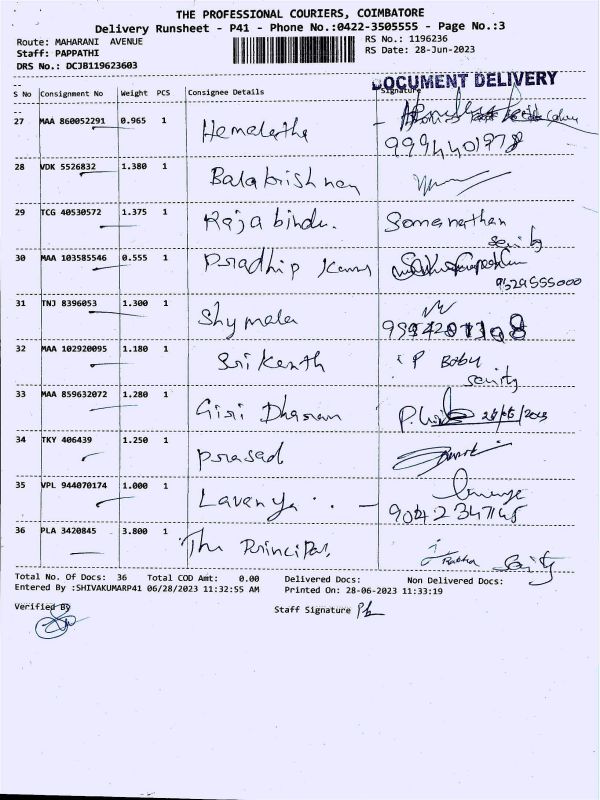 THE PROFESSIONAL COURIERS, COIMBATORE
Delivery Runsheet - P41 - Phone No.:0422-3505555 - Page No.:3
Route: MAHARANI AVENUE RS No.: 1196236
Staff: PAPPATHI RS Date: 28-Jun-2023
DRS No.: DCJB119623603
DOCUMENT DELIVERY
S No Consignment No Weight PCS Consignee Details Signature
27 MAA 860052291 0.965 1 Hemalatha
9994401978
28 VDK 5526832 1.380 1 Balakrishnan
29 TCG 40530572 1.375 1 Rajabindu. Somanathan
30 MAA 103585546 0.555 1 Pradhip Kumar
9529555000
31 TNJ 8396053 1.300 1 Shymala
32 MAA 102920095 1.180 1 Srikanth P Baby
33 MAA 859632072 1.280 1 Giri Dharan
34 TKY 406439 1.250 1 Prasad
35 VPL 944070174 1.000 1 Lavanya
9042347145
36 PLA 3420845 3.800 1 The Principal Prabha
Total No. Of Docs: 36 Total COD Amt: 0.00 Delivered Docs: Non Delivered Docs:
Entered By :SHIVAKUMARP41 06/28/2023 11:32:55 AM Printed On: 28-06-2023 11:33:19
Verified By Staff Signature